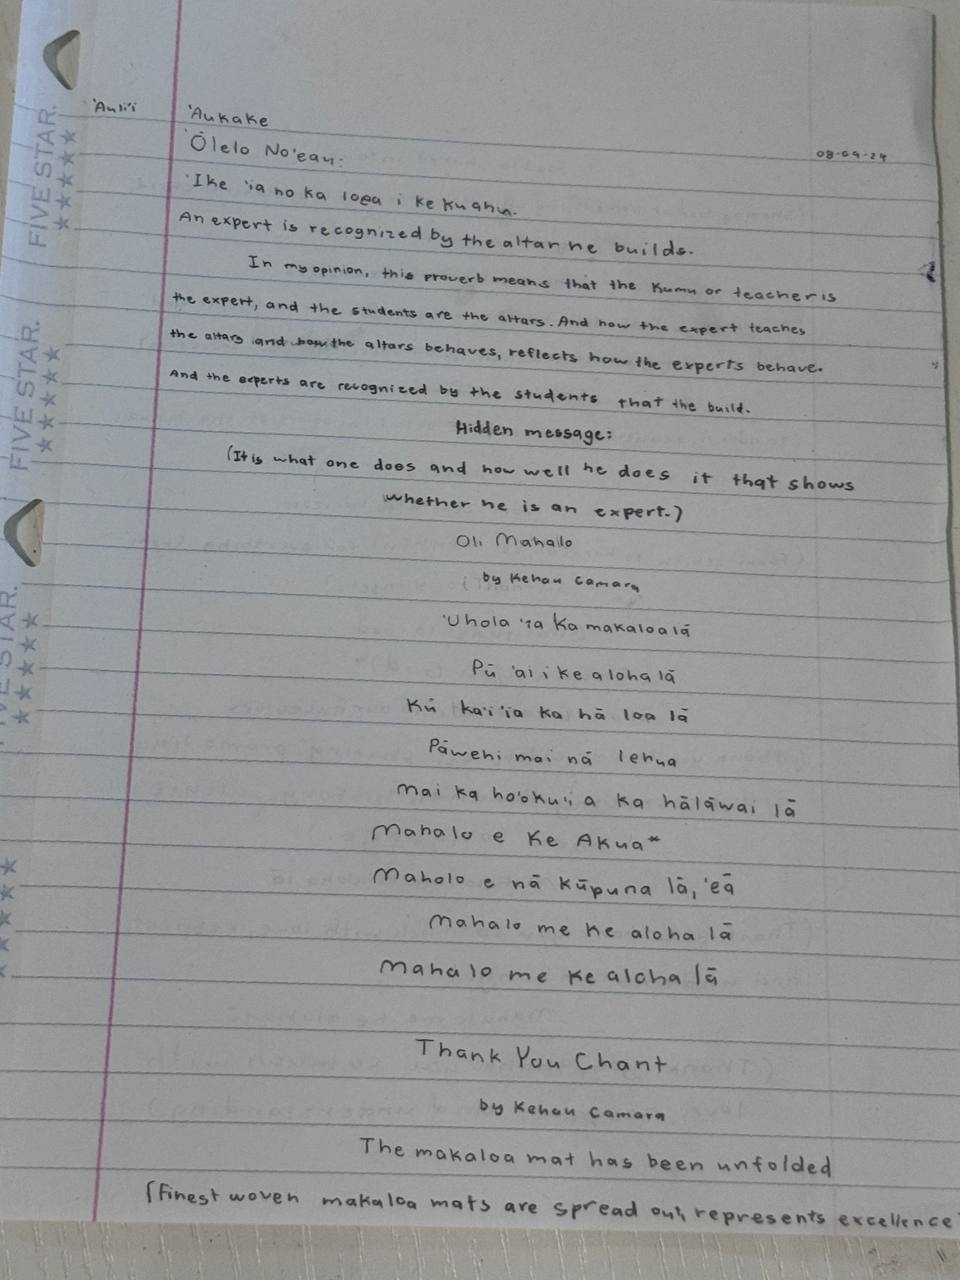 FIVE STAR.
FIVE STAR.
'Auli'i
'Aukake
08-09-24
'Ōlelo No'eau:
'Ike 'ia no ka loea i ke kuahu.
An expert is recognized by the altar he builds.
In my opinion, this proverb means that the Kumu or teacher is
the expert, and the students are the altars. And how the expert teaches
the altars and how the altars behaves, reflects how the experts behave.
And the experts are recognized by the students that the build.
Hidden message:
(It is what one does and how well he does it that shows
whether he is an expert.)
Oli Mahalo
by Kehau Camara
'Uhola 'ia ka makaloa lā
Pū 'ai i ke aloha lā
Kū ka'i 'ia ka hā loa lā
Pāwehi mai nā lehua
Mai ka ho'oku'i a ka hālāwai lā
Mahalo e Ke Akua*
Maholo e nā kūpuna lā, 'eā
Mahalo me ke aloha lā
Mahalo me ke aloha lā
Thank You Chant
by Kehau Camara
The makaloa mat has been unfolded
(Finest woven makaloa mats are spread out, represents excellence